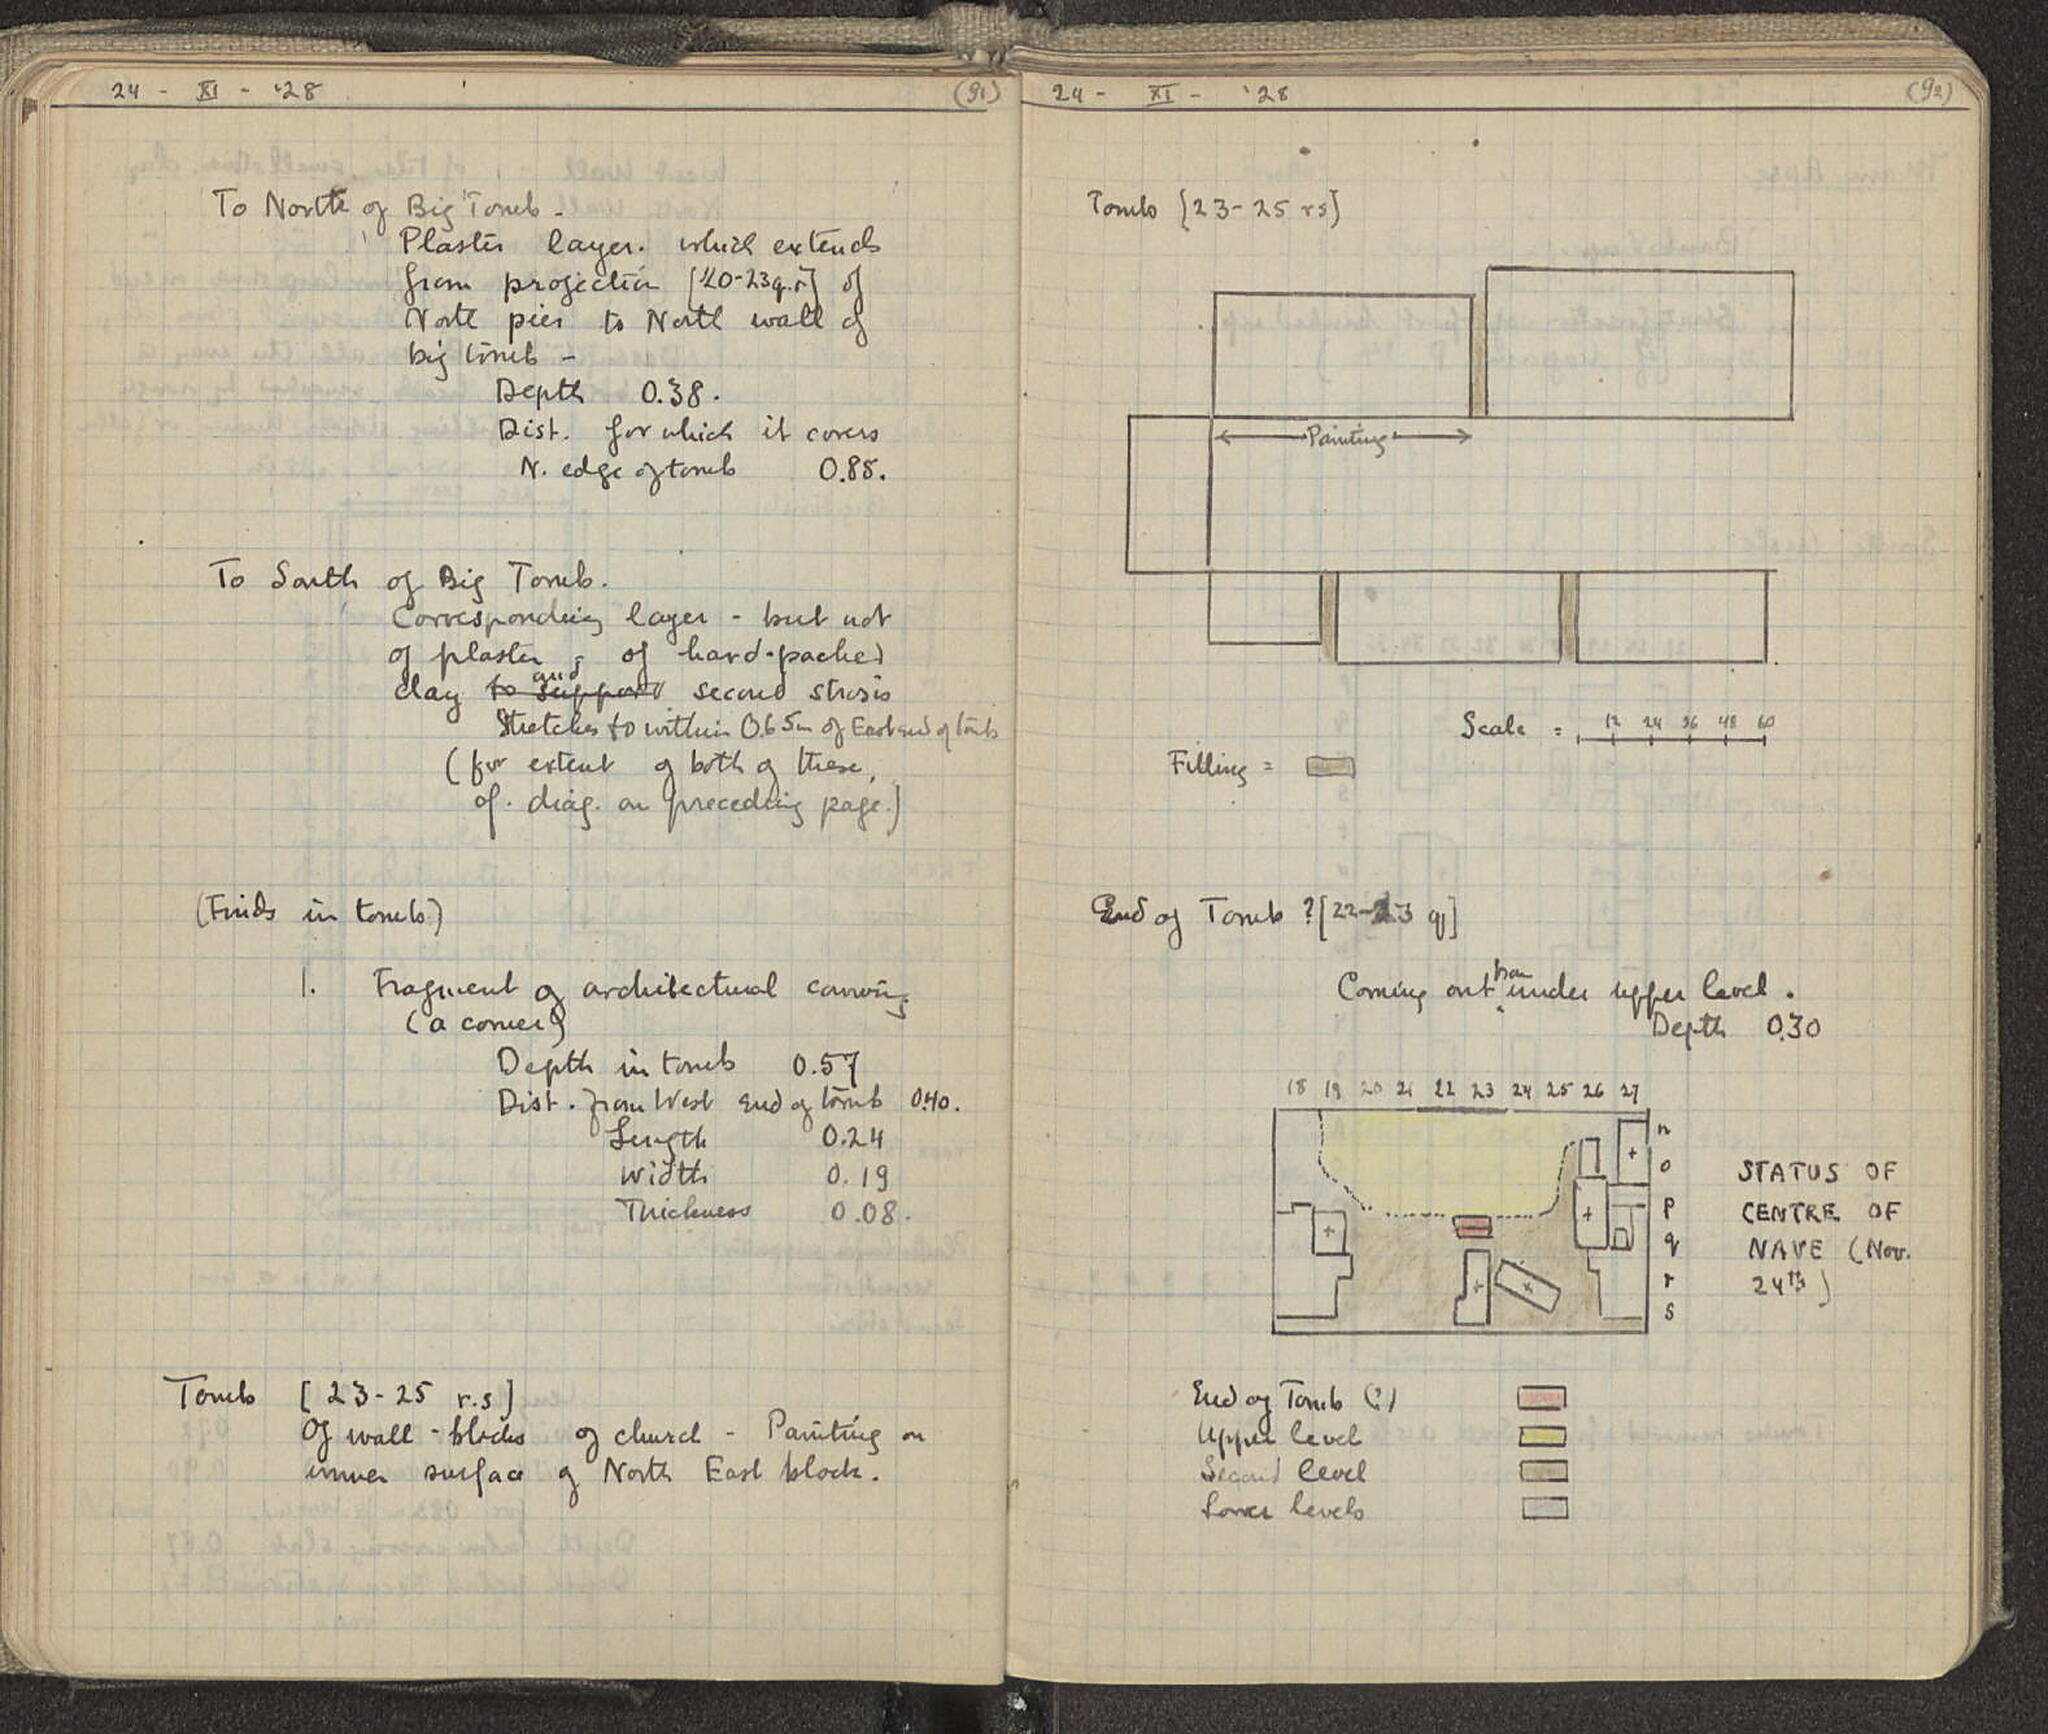 24 - XI - '28 (91)
To North of Big Tomb -
Plaster layer. which extends
from projection [20-23 q.r] of
North pier to North wall of
big tomb -
Depth 0.38.
Dist. for which it covers
N. edge of tomb 0.88.
To South of Big Tomb.
Corresponding layer - but not
of plaster - of hard-packed
clay to support and second strosis
Stretches to within 0.65m of East end of tomb
(for extent of both of these,
cf. diag. on preceding page.)
(Finds in tomb)
1. Fragment of architectural carving
(a corner)
Depth in tomb 0.57
Dist. from West end of tomb 0.40.
Length 0.24
Width 0.19
Thickness 0.08.
Tomb [23-25 r.s]
Of wall-blocks of church - Painting on
inner surface of North East block.
24 - XI - '28 (92)
Tomb [23-25 rs]
Painting
Scale = 12 24 36 48 60
Filling =
End of Tomb ? [22-23 q]
Coming out from under upper level.
Depth 0.30
18 19 20 21 22 23 24 25 26 27
n
o
p
q
r
s
STATUS OF
CENTRE OF
NAVE (Nov.
24th)
End of Tomb (?)
Upper level
Second level
Lower levels